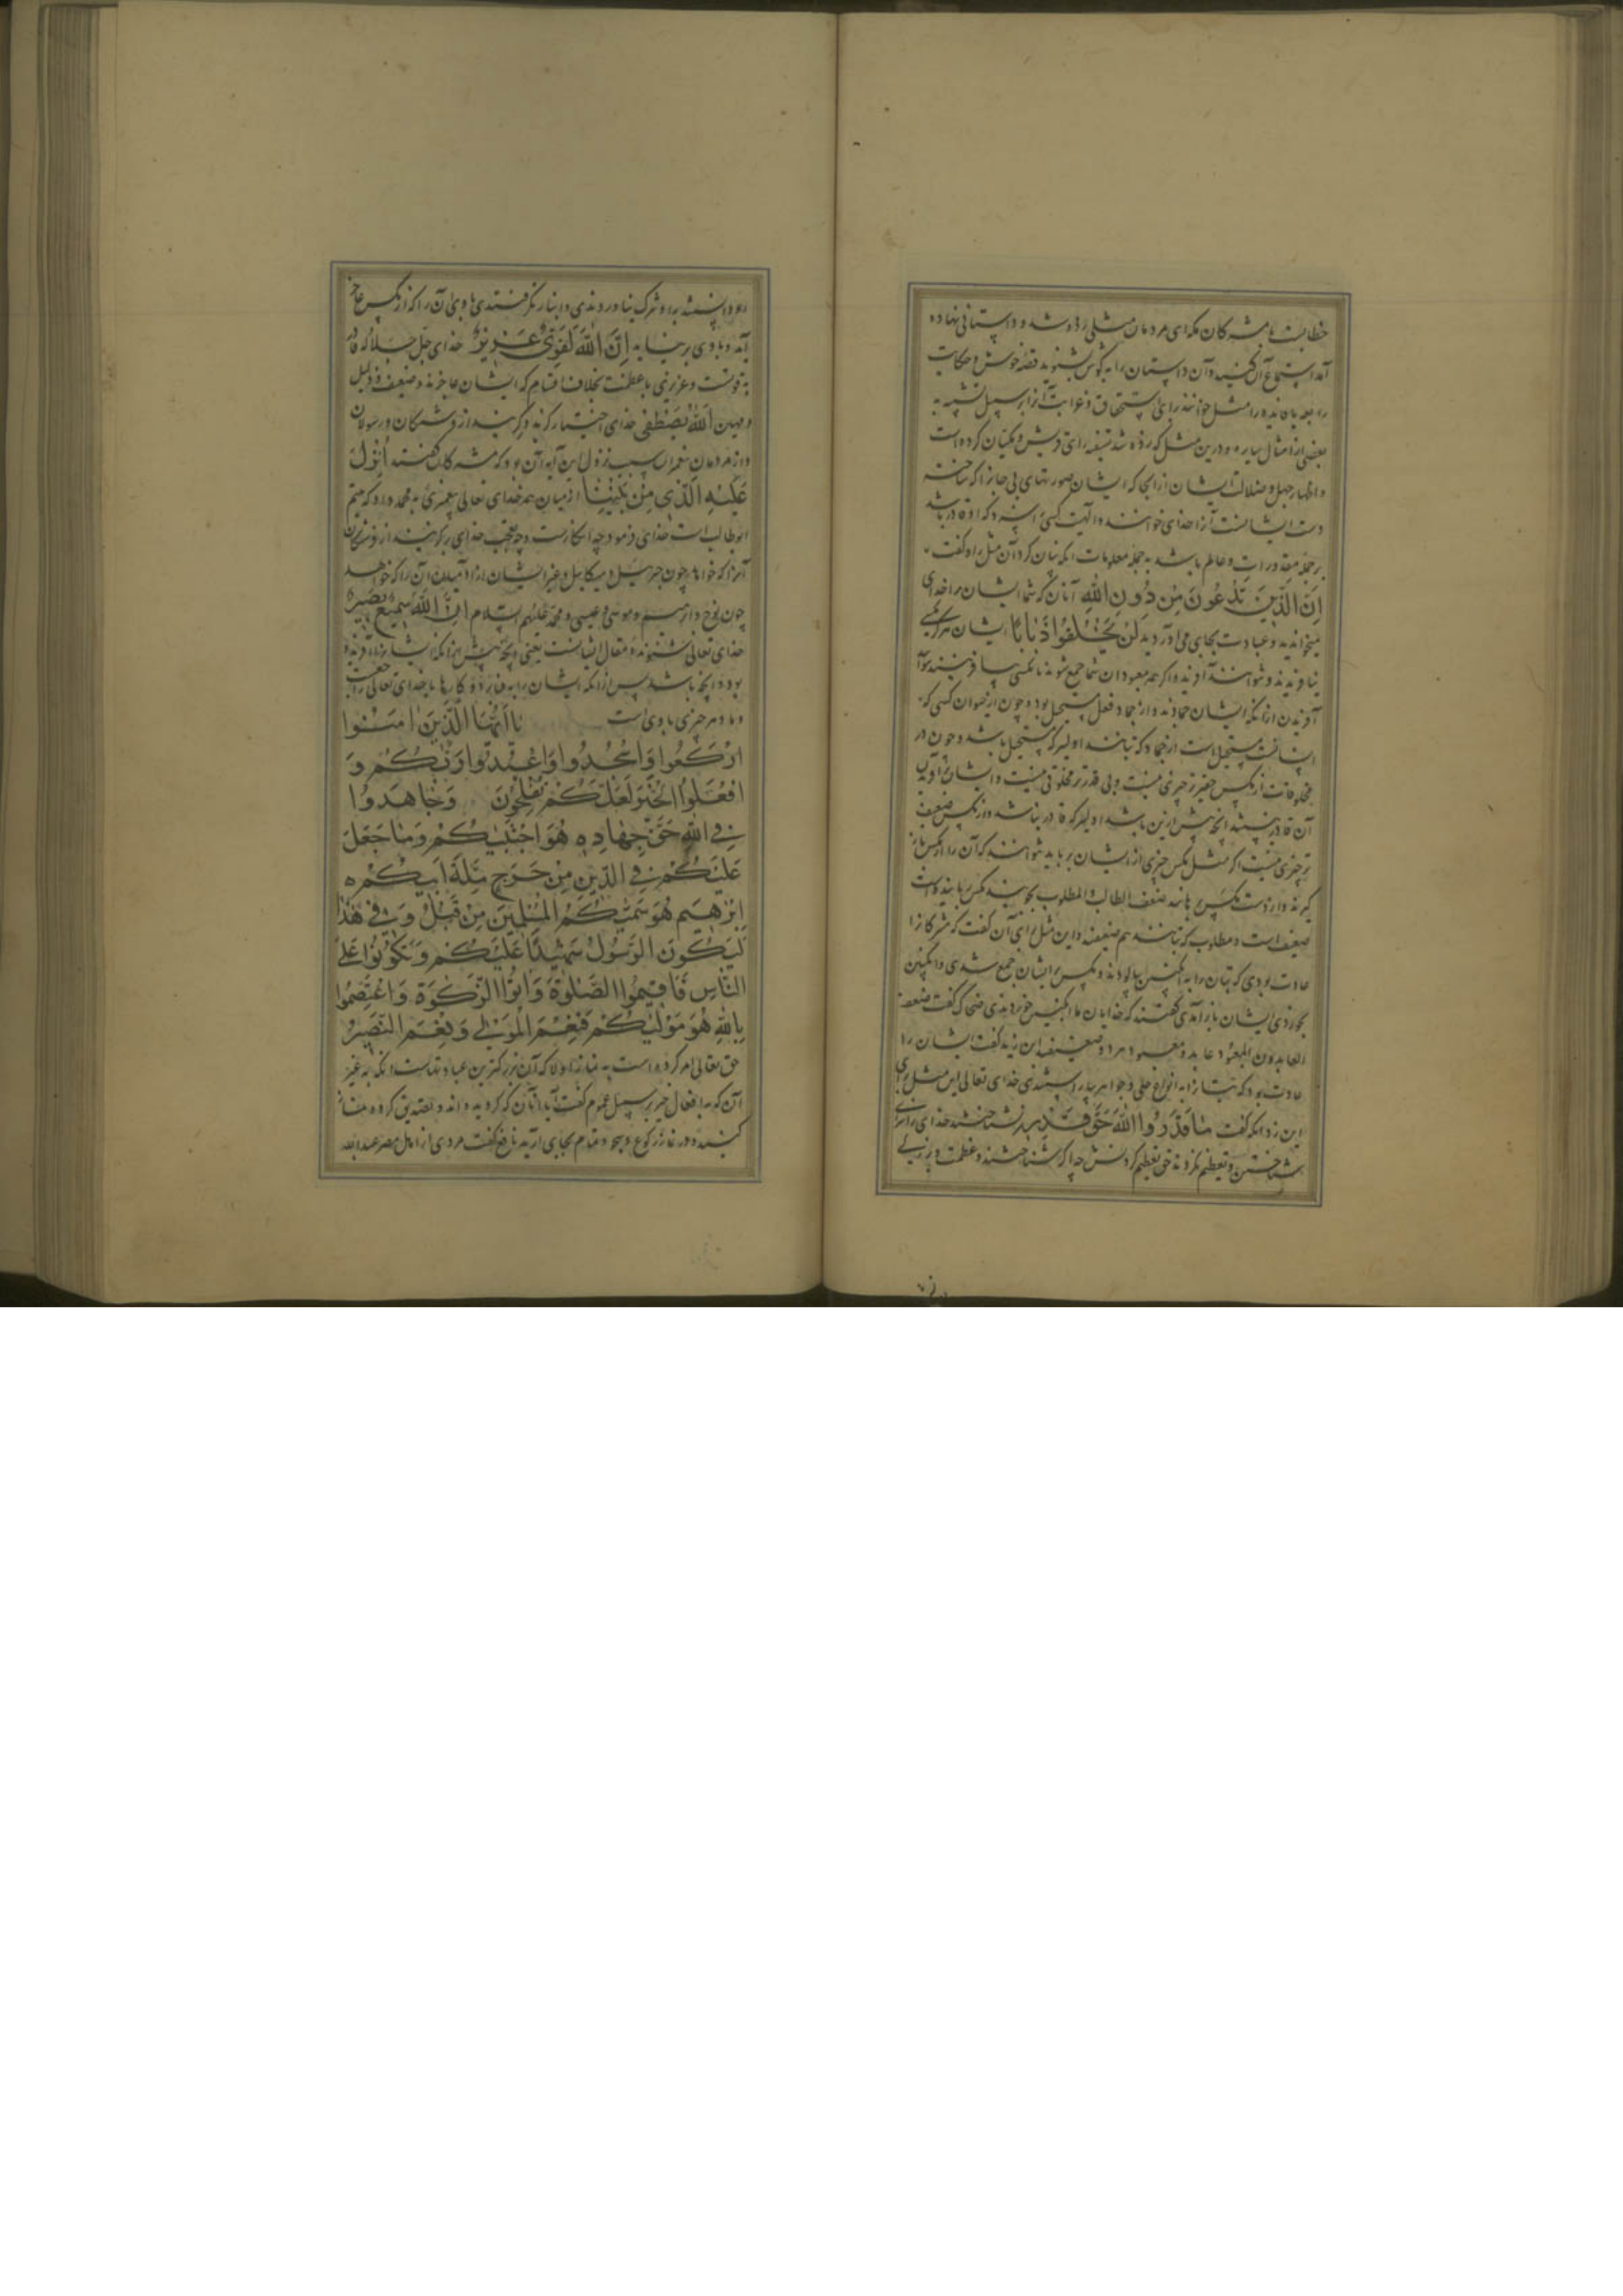 خطابست با مشرکان مکه ای مردمان مثلی زده شد و داستانی نهاده
آمد استماع آن کنید و آن داستان را به گوش بشنوید قصه خوش و حکایت
را مثل خوانند برای استحقاق و غرابت آنرا بر سبیل تشبیه به
بعضی از امثال سایره و درین مثل که زده شد تسفیه رای قریش و مکیان کرده است
و اظهار جهل و ضلالت ایشان از انجا که ایشان صورتهای بی جانرا که ساخته
دست ایشانست آنرا خدای خوانند و الهیت کسی را سزد که او قادر باشد
بر جمله مقدورات و عالم باشد به جمله معلومات انکه بیان کرد آن مثل را و گفت
اِنَّ الَّذینَ تَدْعُونَ مِنْ دُونِ اللّهِ آنان که شما ایشان را خدای
میخوانید و عبادت بجای می آورید لَنْ یَخْلُقُوا ذُبابًا ایشان هرگز مگسی
نیافریدند و نتوانند آفرید و اگر همه معبودان شما جمع شوند تا مگسی بیافرینند نتوانند
آفریدن از انکه ایشان جمادند و از جماد فعل مستحیل بود و چون از حیوان کسی که
انسانست مستحیل است از جماد که بتانند اولیتر که مستحیل باشد و چون در
مخلوقات از مگس حقیرتر چیزی نیست و بی قدرتر مخلوقی نیست و ایشان بر آفریدن
آن قادر نیستند انچه بیش ازین باشد اولیتر که قادر نباشند و از مگس ضعیف
تر چیزی نیست اگر مثل مگس چیزی از ایشان برباید نتوانند که آن را از مگس باز
گیرند و از دست مگس برهانند ضعف الطالب والمطلوب جوینده مگس رباینده است
ضعیف است و مطلوب که بتانند هم ضعیفند و این مثل برای آن گفت که مشرکانرا
عادت بودی که بتان را به انگبین بیالودند و مگس بر ایشان جمع شدی و انگبین
بخوردی ایشان باز آمدی گفتند که خدایان ما انگبین خوردندی ضحاک گفت ضعف
العابدون والمعبود عابد و معبود هر دو ضعیفند ابن زید گفت ایشان را
عادت بود که بتانرا به انواع حلی و جواهر بیاراستندی خدای تعالی این مثل برای
این زد انکه گفت مٰا قَدَرُوا اللّهَ حَقَّ قَدْرِهِ نشناختند خدای را سزای
شناختن و تعظیم نکردند حق تعظیم کردنش چه اگر شناختندی و عظمت و بزرگی
او دانستندی به او شرک نیاوردندی و انباز نگرفتندی با وی آن را که از مگس عاجز
آمد و با وی برنیاید اِنَّ اللّهَ لَقَوِیٌّ عَزیزٌ خدای جل جلاله قادر
به قوتست و عزیزی با عظمت بخلاف اصنام که ایشان عاجزند و ضعیف و ذلیل
و مهین اَللّهُ یَصْطَفی خدای اختیار کند و گزیند از فرشتگان و رسولان
و از مردمان پیغمبران سبب نزول این آیه آن بود که مشرکان گفتند اُنْزِلَ
عَلَیْهِ الَّذی مِنْ بَیْنِنٰا از میان همه خدای تعالی پیغمبری به محمد داد که یتیم
ابوطالب است خدای فرمود چه انکارست و چه تعجب خدای برگزیند از فرشتگان
آنرا که خواهد چون جبرئیل و میکائیل و غیر ایشان و از آدمیان آن را که خواهد
چون نوح و ابرهیم و موسی و عیسی و محمد علیهم السلام اِنَّ اللّهَ سَمیعٌ بَصیرٌ
خدای تعالی شنونده مقال ایشانست یعنی انچه پیش از انکه ایشانرا آفریده
بود و انچه باشد پس از انکه ایشان را به فنا برد و کارها با خدای تعالی راجعست
و مرد هر چیزی با وی است یٰا اَیُّهَا الَّذینَ اٰمَنُوا
ارْکَعُوا وَاسْجُدُوا وَاعْبُدُوا رَبَّکُمْ وَ
افْعَلُوا الْخَیْرَ لَعَلَّکُمْ تُفْلِحُونَ وَجٰاهِدُوا
فِی اللّهِ حَقَّ جِهٰادِهِ هُوَ اجْتَبٰیکُمْ وَمٰا جَعَلَ
عَلَیْکُمْ فِی الدّینِ مِنْ حَرَجٍ مِلَّةَ اَبیکُمْ
اِبْرٰهیمَ هُوَ سَمّٰیکُمُ الْمُسْلِمینَ مِنْ قَبْلُ وَفی هٰذٰا
لِیَکُونَ الرَّسُولُ شَهیدًا عَلَیْکُمْ وَتَکُونُوا عَلَی
النّٰاسِ فَاَقیمُوا الصَّلٰوةَ وَاٰتُوا الزَّکٰوةَ وَاعْتَصِمُوا
بِاللّهِ هُوَ مَوْلٰیکُمْ فَنِعْمَ الْمَوْلٰی وَنِعْمَ النَّصیرُ
حق تعالی امر کرده است به نماز اولا که آن بزرگترین عباداتست انگه به غیر
آن که به افعال خیر بر سبیل عموم گفت ای آنان که گرویده اند و تصدیق کرده نماز
کنید و در نماز رکوع و سجود تمام بجای آرید نافع گفت مردی از اهل مصر عبدالله